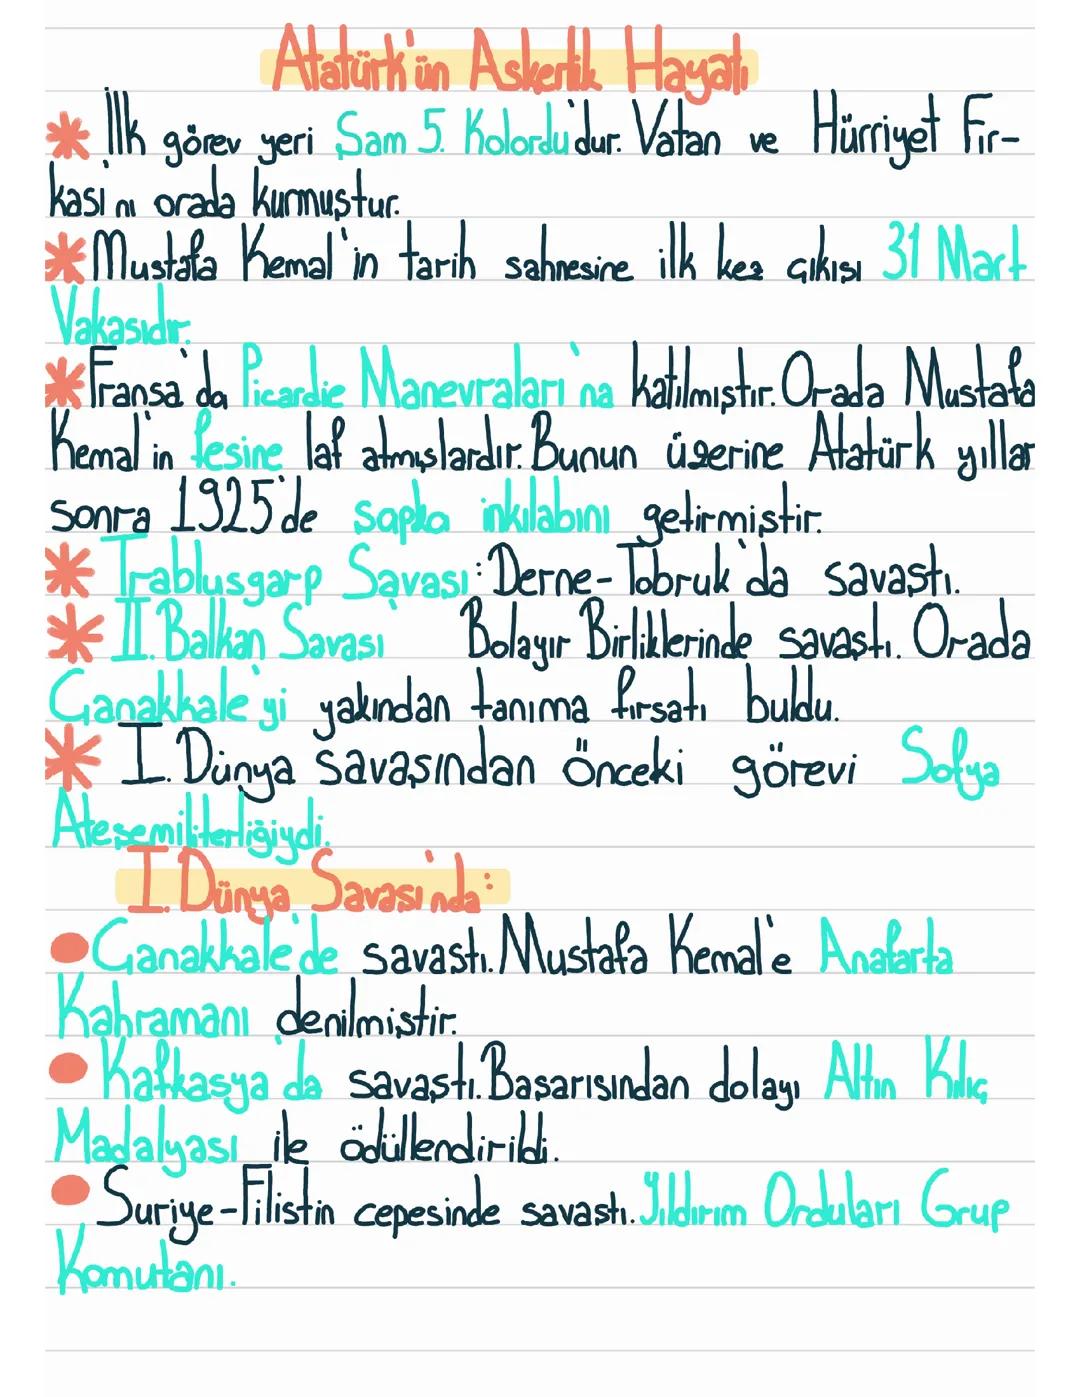 Atatürk'ün Askerlik Hayatı
İlk görev yeri Şam 5. Kolordu'dur. Vatan ve Hürriyet Fır-
kası'nı orada kurmuştur.
Mustafa Kemal'in tarih sahnesine ilk kez çıkışı 31 Mart
Vakasıdır.
Fransa'da Picardie Manevraları'na katılmıştır. Orada Mustafa
Kemal'in fesine laf atmışlardır. Bunun üzerine Atatürk yıllar
sonra 1925'de şapka inkılabını getirmiştir.
Trablusgarp Savaşı: Derne-Tobruk'da savaştı.
II. Balkan Savaşı Bolayır Birliklerinde savaştı. Orada
Çanakkale'yi yakından tanıma fırsatı buldu.
I. Dünya savaşından önceki görevi Sofya
Ateşemiliterliğiydi.
I. Dünya Savaşı'nda:
Çanakkale'de savaştı. Mustafa Kemal'e Anafarta
Kahramanı denilmiştir.
Kafkasya'da savaştı. Başarısından dolayı Altın Kılıç
Madalyası ile ödüllendirildi.
Suriye-Filistin cepesinde savaştı. Yıldırım Orduları Grup
Komutanı.